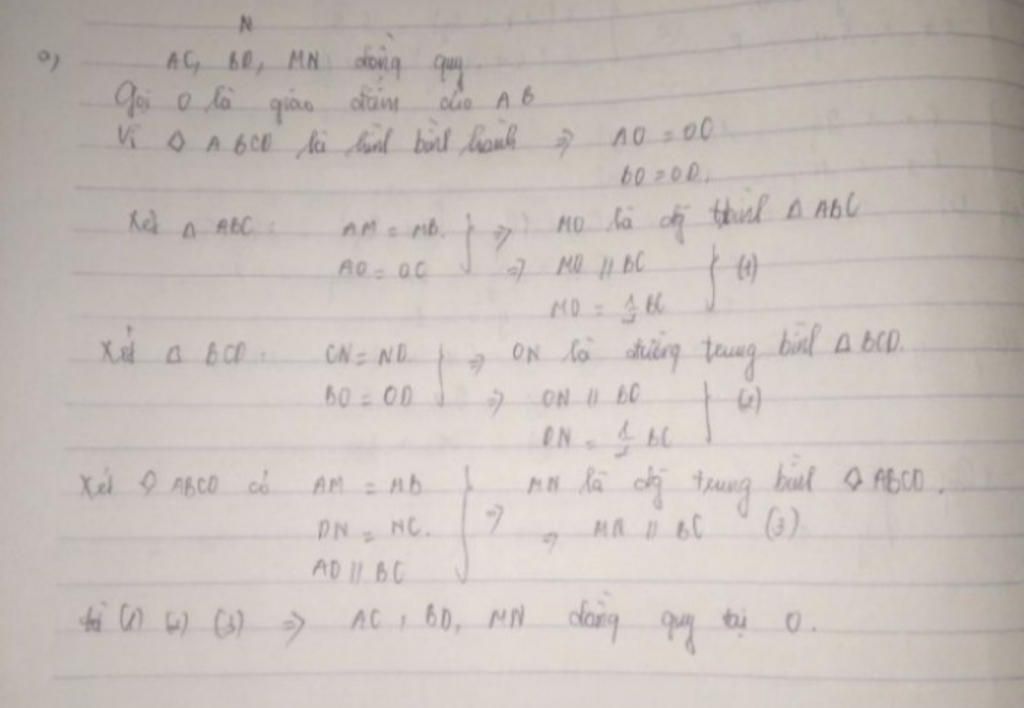 N
a) AC, BD, MN đồng quy
Gọi O là giao điểm của AB
Vì ◇ ABCD là hình bình hành ⇒ AO = OC
BO = OD.
Xét Δ ABC: AM = MB. } ⇒ MO là đg tbình Δ ABC
AO = OC ⇒ MO // BC } (1)
MO = 1/2 BC
Xét Δ BCD: CN = ND } ⇒ ON là đường trung bình Δ BCD.
BO = OD ⇒ ON // BC } (2)
ON = 1/2 BC
Xét ◇ ABCD có AM = MB } ⇒ MN là đg trung bình ◇ ABCD.
DN = NC. ⇒ MN // BC (3)
AD // BC
từ (1) (2) (3) ⇒ AC, BD, MN đồng quy tại O.